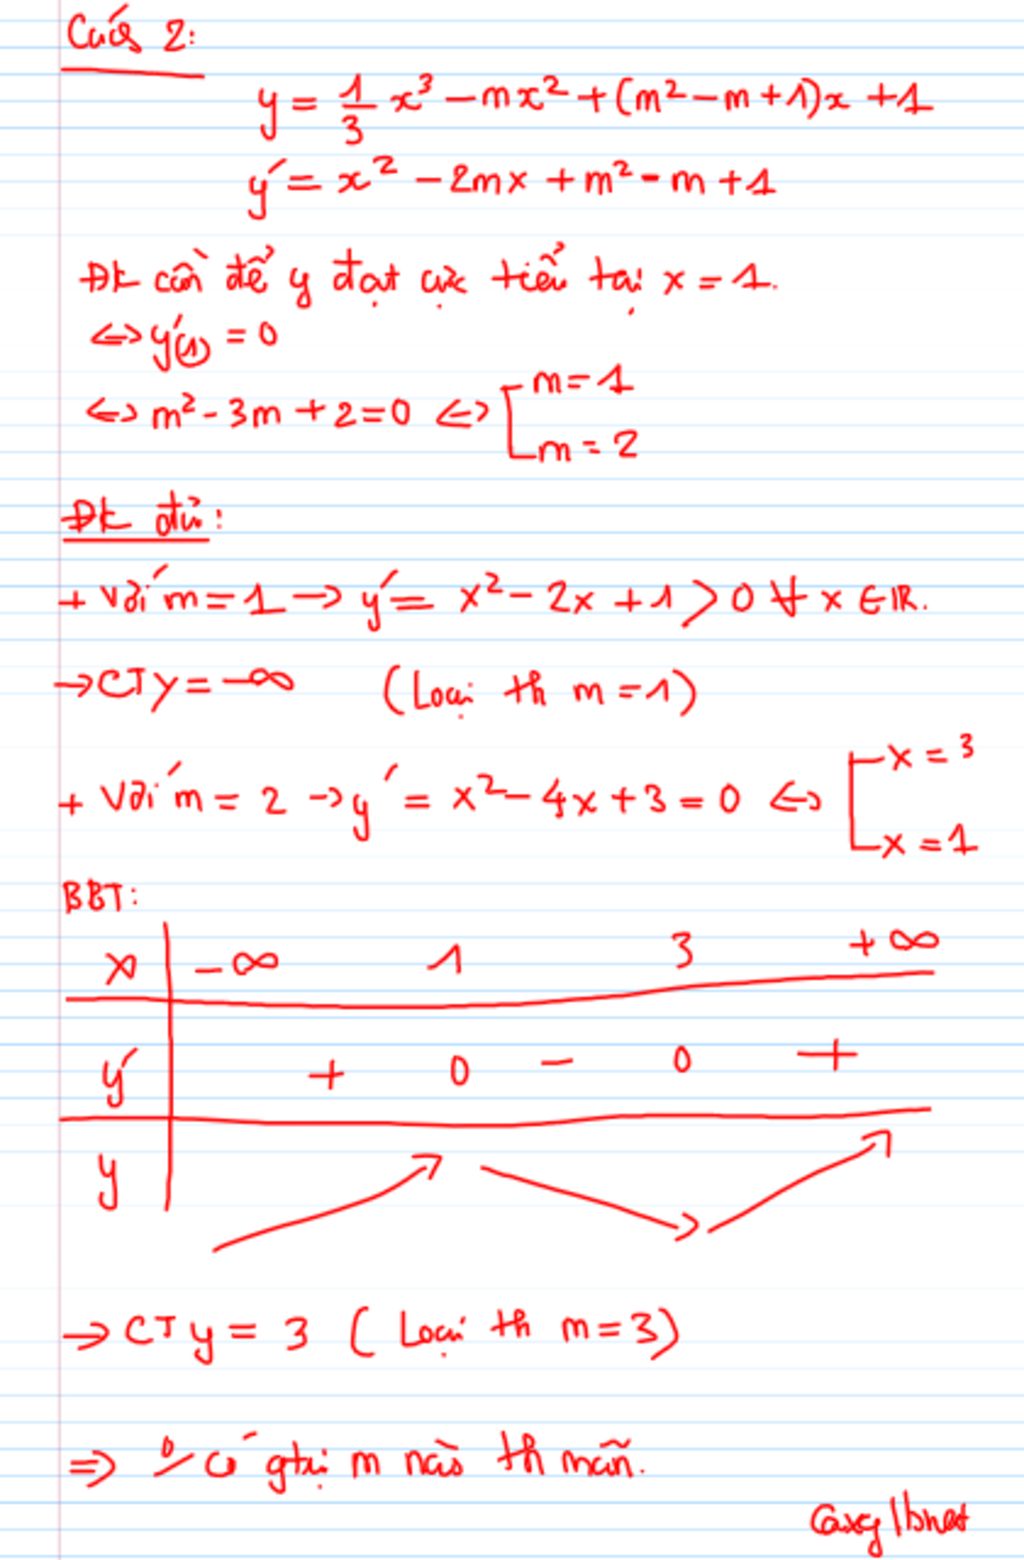 Cách 2:
y = 1/3 x³ - mx² + (m² - m + 1)x + 1
y' = x² - 2mx + m² - m + 1
Đk cần để y đạt cực tiểu tại x = 1.
<=> y'(1) = 0
<=> m² - 3m + 2 = 0 <=> [ m = 1
m = 2
Đk đủ:
+ Với m = 1 -> y' = x² - 2x + 1 > 0 ∀ x ∈ IR.
-> CT y = -∞ (Loại th m = 1)
+ Với m = 2 -> y' = x² - 4x + 3 = 0 <=> [ x = 3
x = 1
BBT:
x -∞ 1 3 +∞
y' + 0 - 0 +
y
-> CT y = 3 ( Loại th m = 3)
=> có gtrị m nào th mãn.